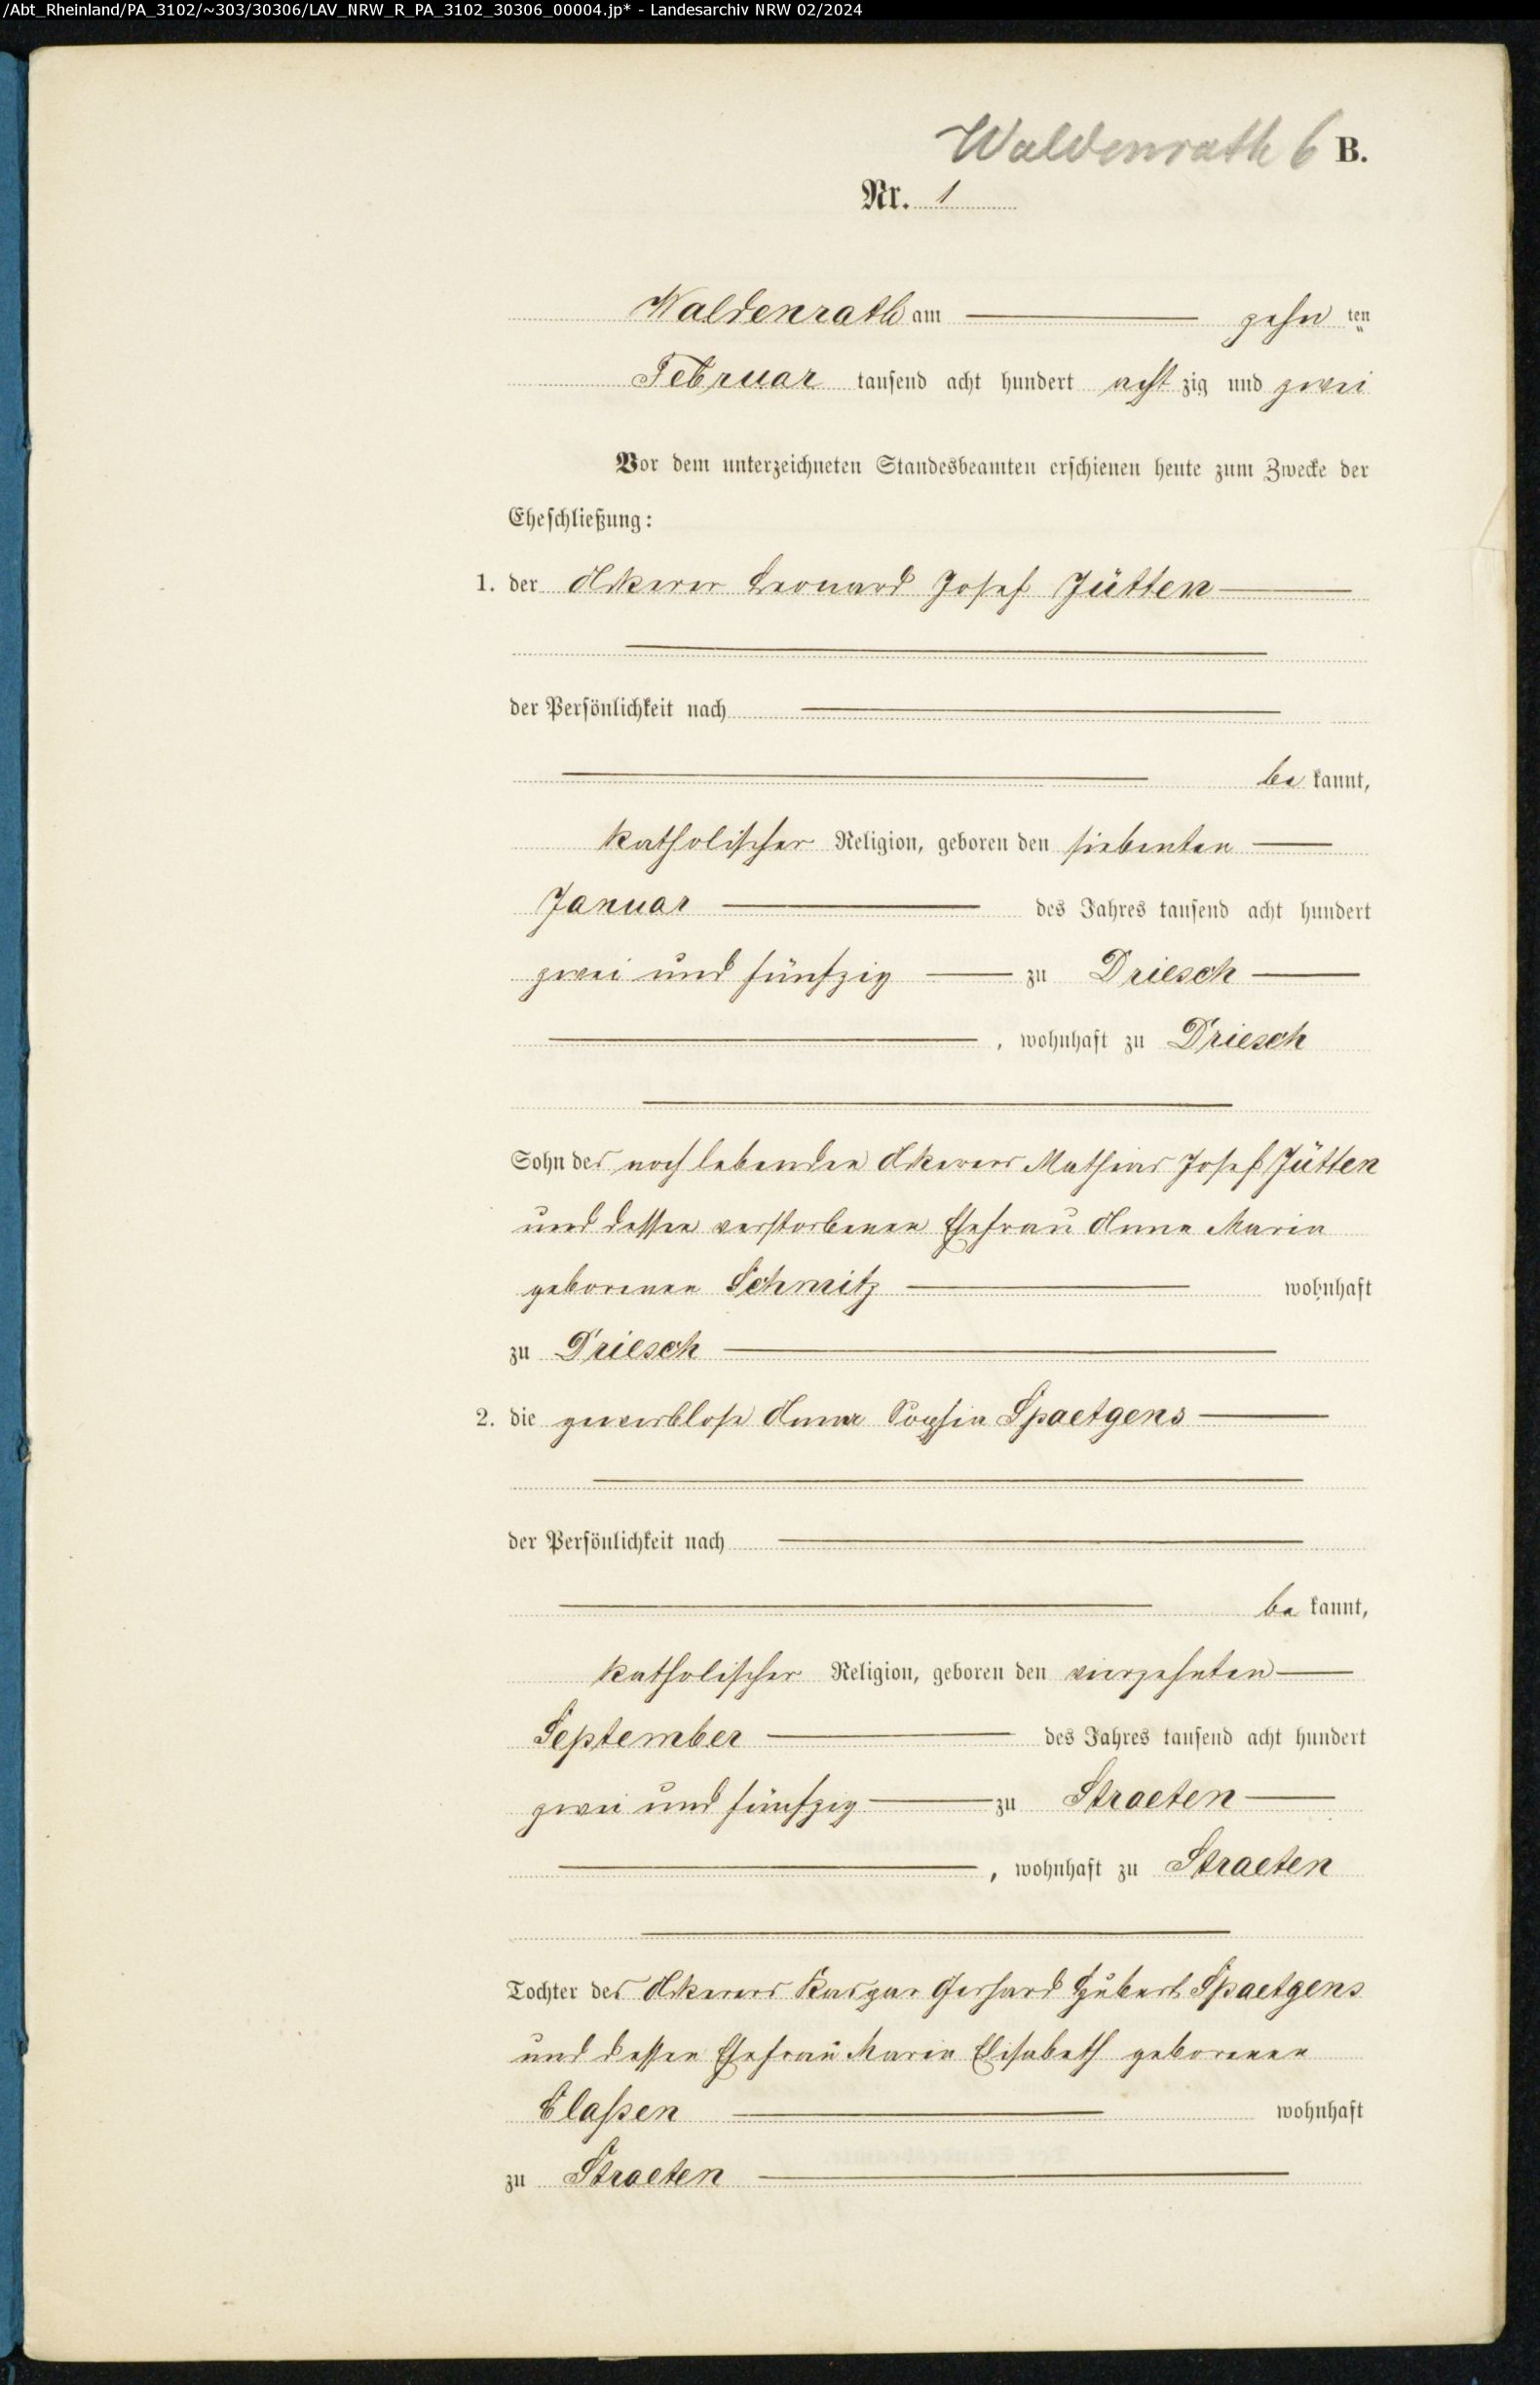 /Abt_Rheinland/PA_3102/~303/30306/LAV_NRW_R_PA_3102_30306_00004.jp* - Landesarchiv NRW 02/2024
Waldenrath 6 B.
Nr. 1
Waldenrath am zehn ten
Februar tausend acht hundert acht zig und zwei
Vor dem unterzeichneten Standesbeamten erschienen heute zum Zwecke der
Eheschließung:
1. der Akerer Leonard Josef Jütten
der Persönlichkeit nach
be kannt,
katholischer Religion, geboren den siebenten
Januar des Jahres tausend acht hundert
zwei und fünfzig zu Driesch
, wohnhaft zu Driesch
Sohn des noch lebenden Akerers Mathias Josef Jütten
und dessen verstorbenen Ehefrau Anna Maria
geborenen Schmitz wohnhaft
zu Driesch
2. die gewerblose Anna Sophia Spaetgens
der Persönlichkeit nach
be kannt,
katholischer Religion, geboren den vierzehnten
September des Jahres tausend acht hundert
zwei und fünfzig zu Straeten
, wohnhaft zu Straeten
Tochter des Akerers Kaspar Gerhard Hubert Spaetgens
und dessen Ehefrau Maria Elisabeth geborenen
Claßen wohnhaft
zu Straeten